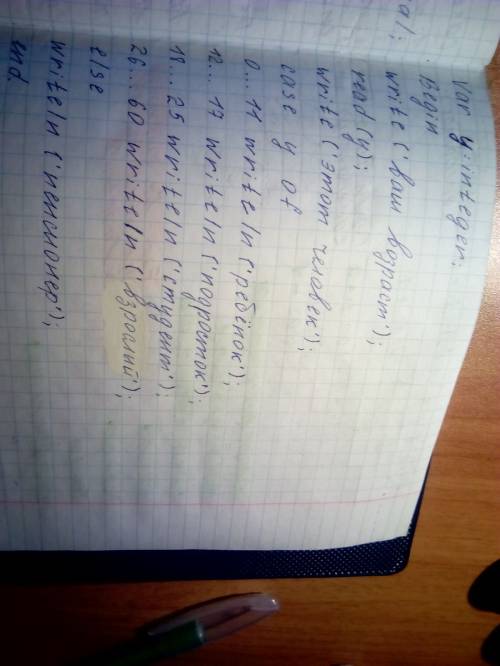 Var y:integer;
Begin
write ('ваш возраст');
read (y);
write ('этот человек');
case y of
0...11 write ln ('ребёнок');
12...17 write ln ('подросток');
18...25 write ln ('студент');
26...60 write ln ('взрослый');
else
write ln ('пенсионер');
end